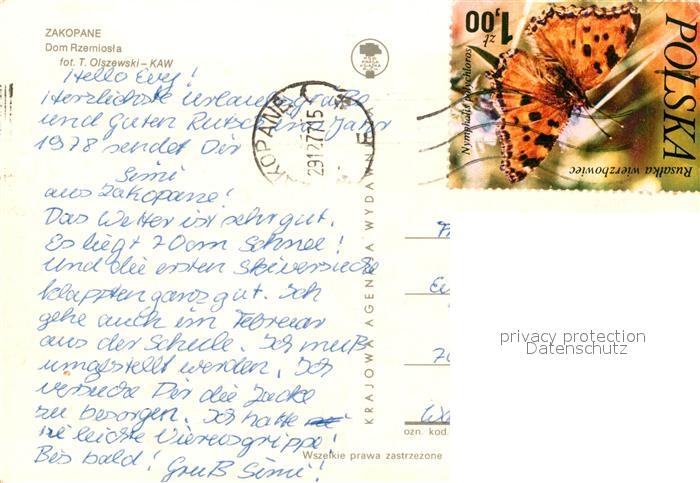 ZAKOPANE
Dom Rzemiosła
fot. T. Olszewski – KAW
Hello Evy!
Herzlichste Urlaubsgrüße
und guten Rutsch ins Jahr
1978 sendet Dir
Simi
aus Zakopane!
Das Wetter ist sehr gut.
Es liegt 70cm Schnee!
Und die ersten Skiversuche
klappten ganz gut. Ich
gehe auch im Februar
aus der Schule. Ich muß
umgestellt werden. Ich
versuche Dir die Jacke
zu besorgen. Ich hatte
ne leichte Virusgrippe!
Bis bald! Gruß Simi!
ZAKOPANE
29.12.77.15
KRAJOWA AGENCJA WYDAWN
1,00 zł
POLSKA
Nymphalis polychloros
Rusałka wierzbowiec
privacy protection
Datenschutz
ozn. kod.
Wszelkie prawa zastrzeżone